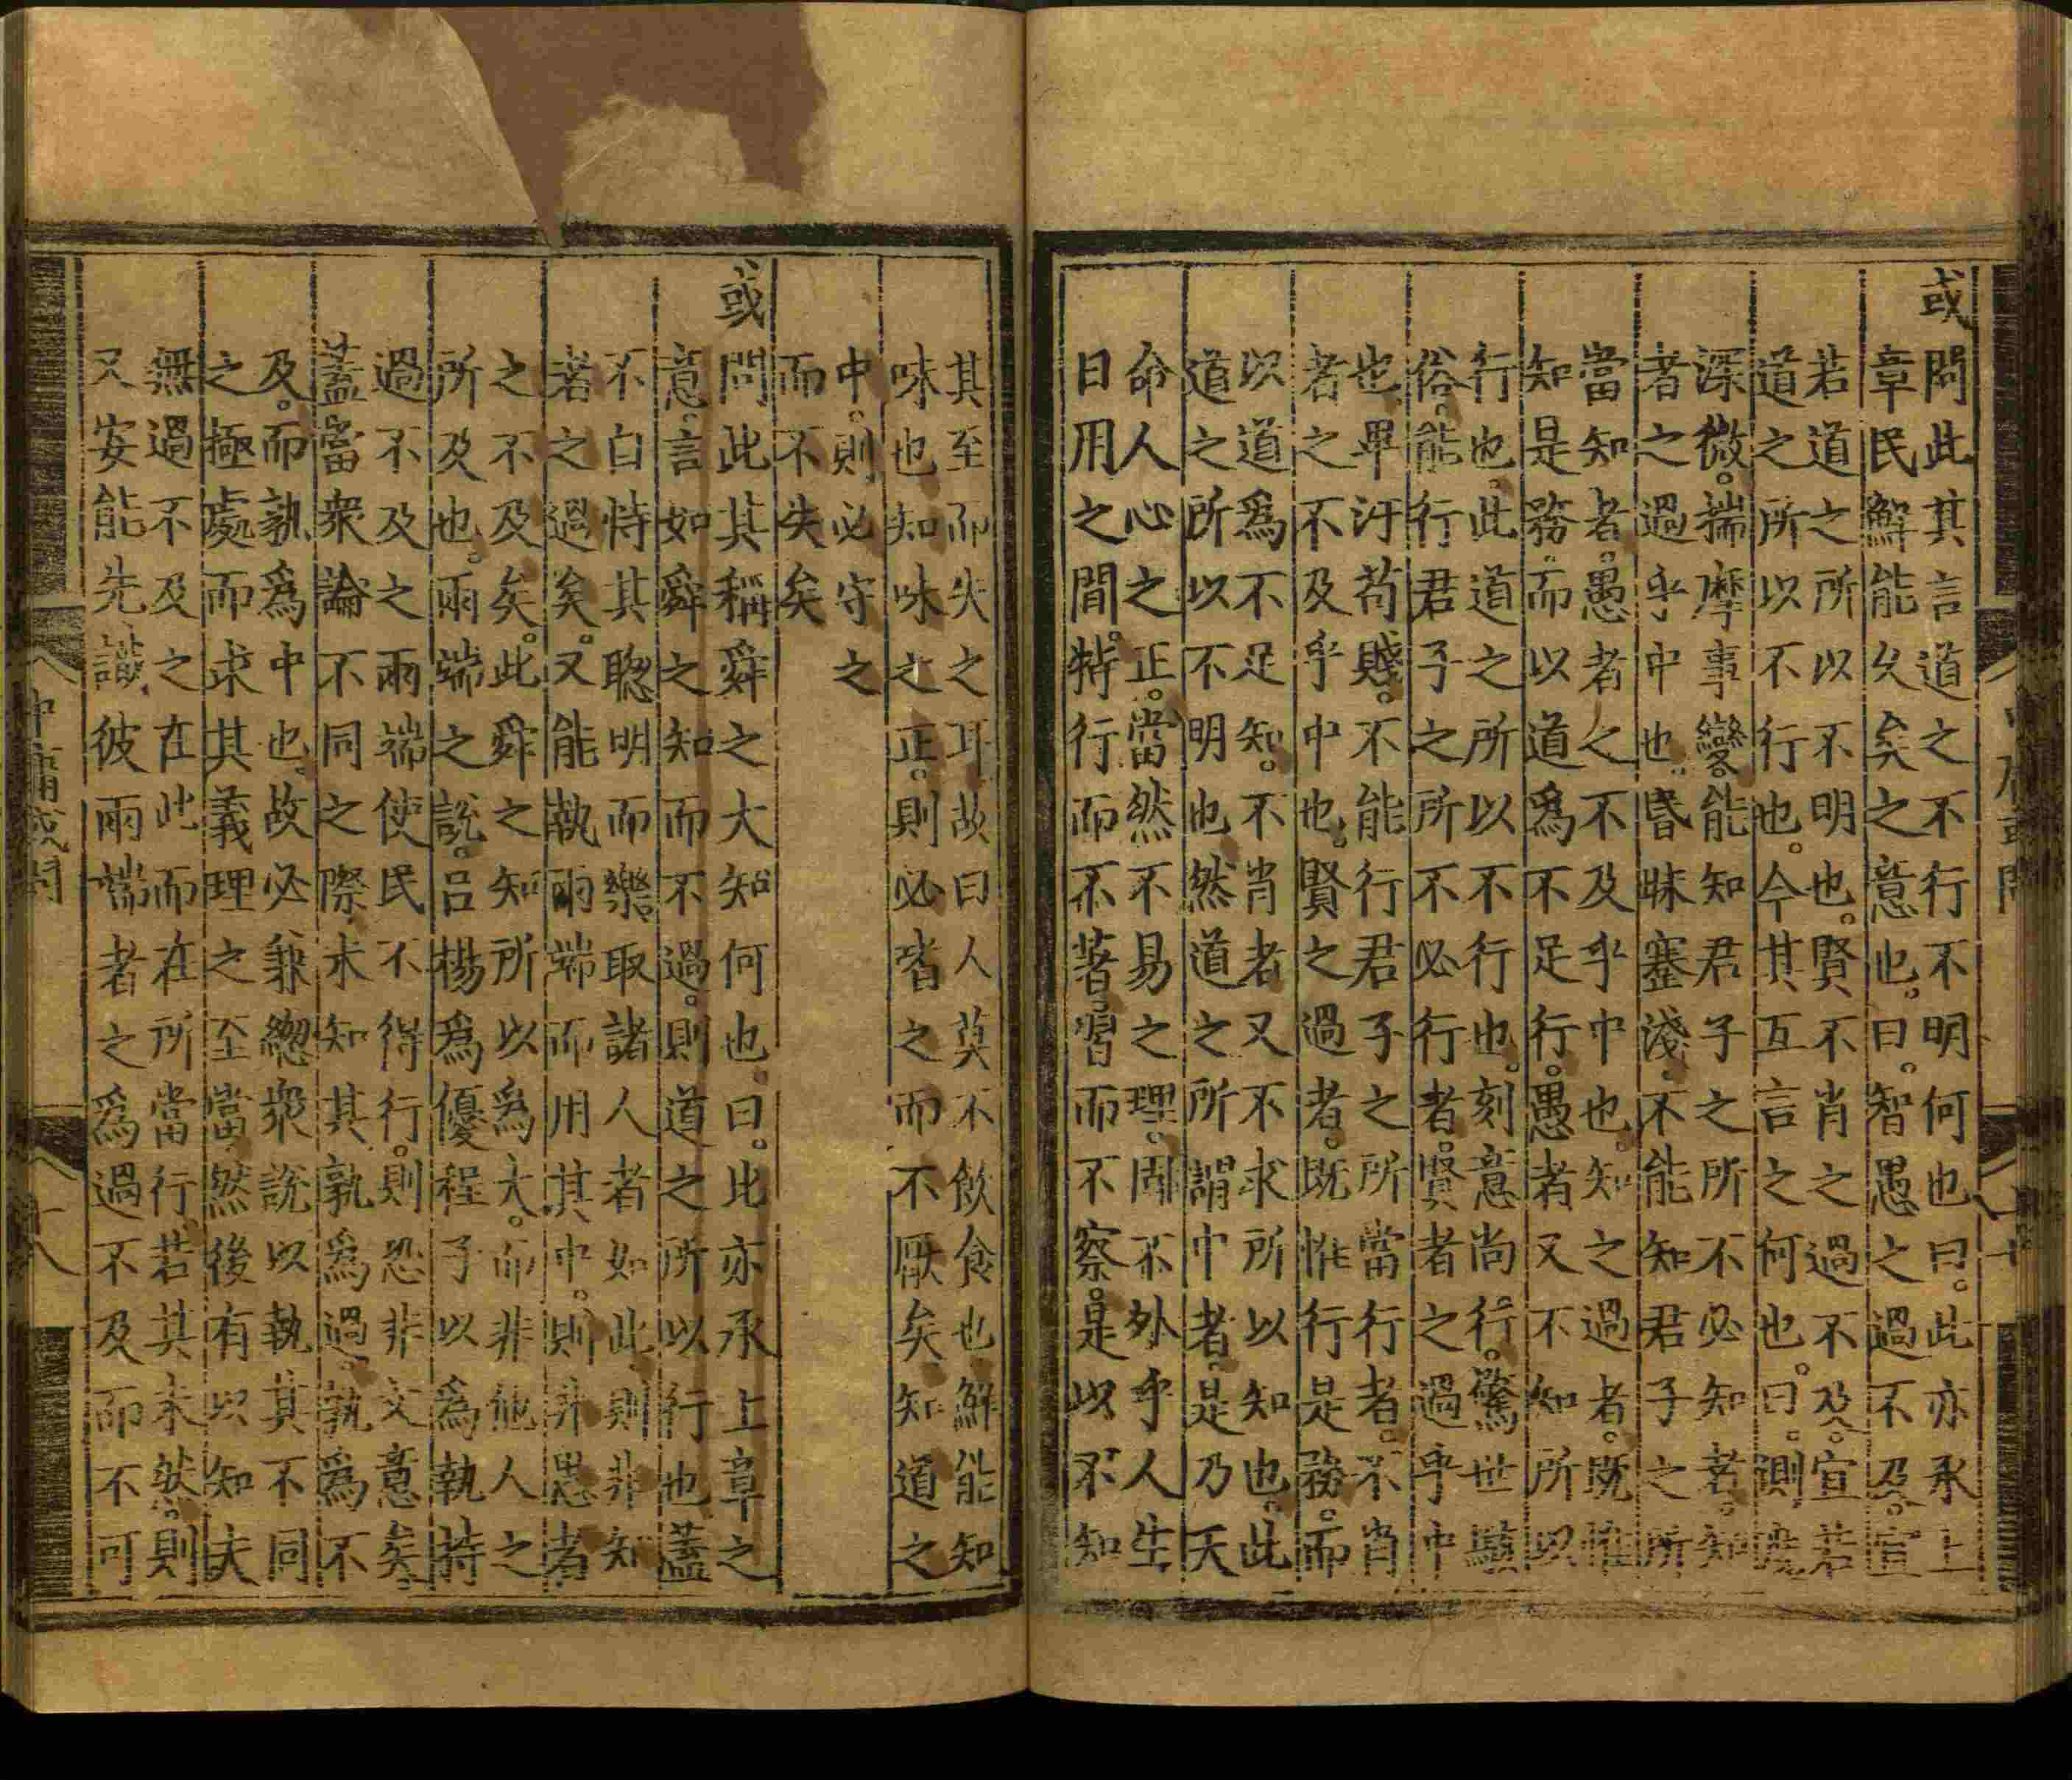 或問此其言道之不行不明何也曰此亦承上
章民鮮能久矣之意也曰智愚之過不及宜
若道之所以不明也賢不肖之過不及宜若
道之所以不行也今其互言之何也曰測度
深微揣摩事變能知君子之所不必知者知
者之過乎中也昏昧蹇淺不能知君子之所
當知者愚者之不及乎中也知之過者既惟
知是務而以道爲不足行愚者又不知所以
行也此道之所以不行也刻意尚行驚世駭
俗能行君子之所不必行者賢者之過乎中
也卑汙苟賤不能行君子之所當行者不肖
者之不及乎中也賢之過者既惟行是務而
以道爲不足知不肖者又不求所以知也此
道之所以不明也然道之所謂中者是乃天
命人心之正當然不易之理固不外乎人生
日用之間特行而不著習而不察是以不知
其至而失之耳故曰人莫不飲食也鮮能知
味也知味之正則必嗜之而不厭矣知道之
中則必守之
而不失矣
或問此其稱舜之大知何也曰此亦承上章之
意言如舜之知而不過則道之所以行也蓋
不自恃其聦明而樂取諸人者如此則非知
者之過矣又能執兩端而用其中則非愚者
之不及矣此舜之知所以爲大而非他人之
所及也兩端之說吕楊爲優程子以爲執持
過不及之兩端使民不得行則恐非文意矣
蓋當衆論不同之際未知其孰爲過孰爲不
及而孰爲中也故必兼緫衆說以執其不同
之極處而求其義理之至當然後有以知夫
無過不及之在此而在所當行若其未然則
又安能先識彼兩端者之爲過不及而不可
中庸或問
十八